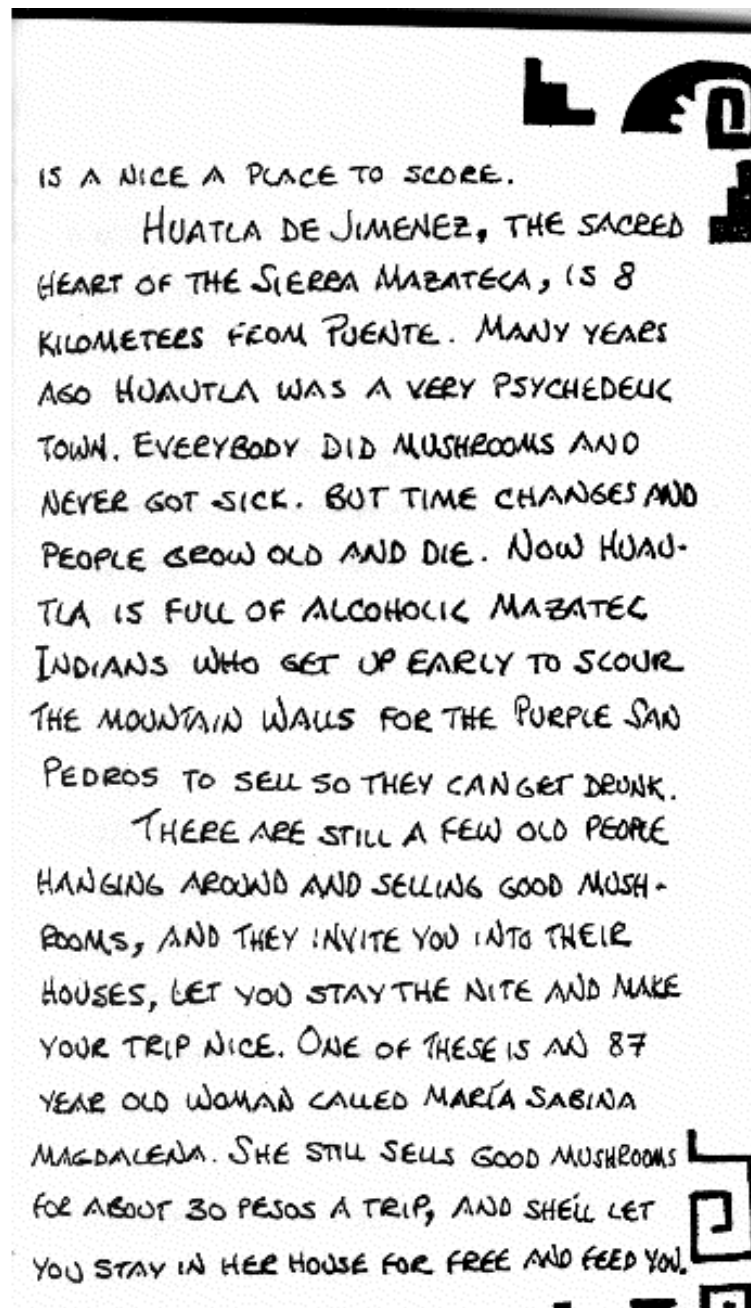 IS A NICE A PLACE TO SCORE.
HUATLA DE JIMENEZ, THE SACRED
HEART OF THE SIERRA MAZATECA, IS 8
KILOMETERS FROM PUENTE. MANY YEARS
AGO HUAUTLA WAS A VERY PSYCHEDELIC
TOWN. EVERYBODY DID MUSHROOMS AND
NEVER GOT SICK. BUT TIME CHANGES AND
PEOPLE GROW OLD AND DIE. NOW HUAU-
TLA IS FULL OF ALCOHOLIC MAZATEC
INDIANS WHO GET UP EARLY TO SCOUR
THE MOUNTAIN WALLS FOR THE PURPLE SAN
PEDROS TO SELL SO THEY CAN GET DRUNK.
THERE ARE STILL A FEW OLD PEOPLE
HANGING AROUND AND SELLING GOOD MUSH-
ROOMS, AND THEY INVITE YOU INTO THEIR
HOUSES, LET YOU STAY THE NITE AND MAKE
YOUR TRIP NICE. ONE OF THESE IS AN 87
YEAR OLD WOMAN CALLED MARÍA SABINA
MAGDALENA. SHE STILL SELLS GOOD MUSHROOMS
FOR ABOUT 30 PESOS A TRIP, AND SHE'LL LET
YOU STAY IN HER HOUSE FOR FREE AND FEED YOU.